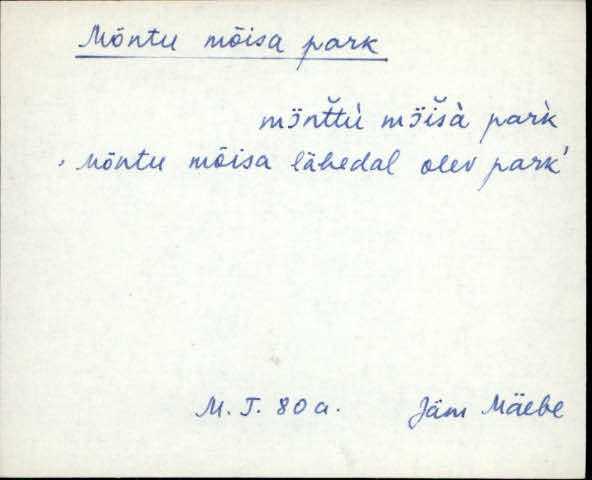 Mõntu mõisa park
mɔ̈nt̆t̀ù mɔ̈ĭs̆à par̀k
‚Mõntu mõisa lähedal olev park’
M. T. 80 a. Jäm Mäebe